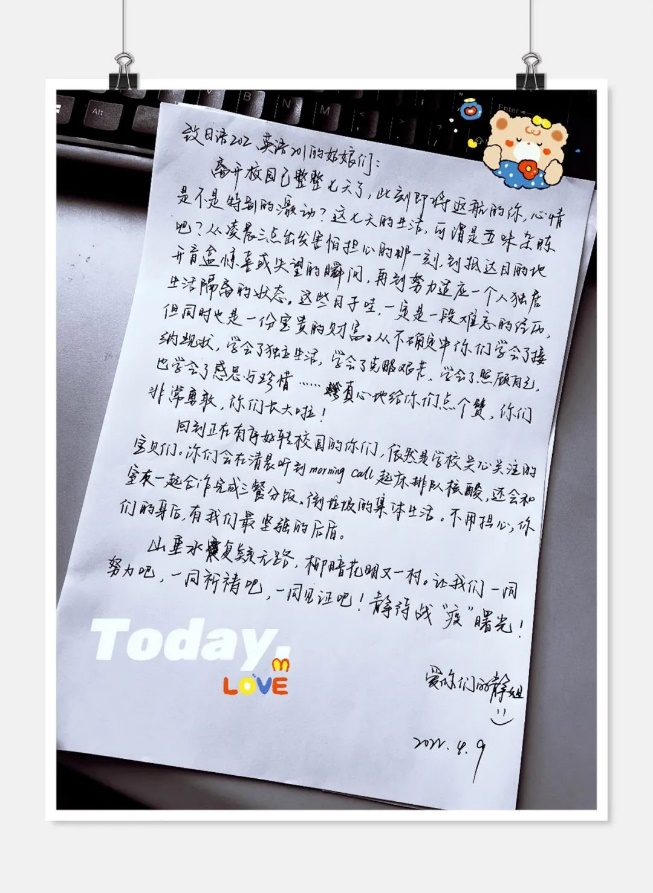 Alt
V
B
N
M
Enter
致日语202 英语201的姑娘们：
离开校园已整整七天了，此刻即将返航的你，心情
是不是特别的激动？这七天的生活，可谓是五味杂陈
吧？从凌晨三点出发害怕担心的那一刻，到抵达目的地
开盲盒惊喜或失望的瞬间，再到努力适应一个人独居
生活隔离的状态。这些日子哇，一定是一段难忘的经历，
但同时也是一份宝贵的财富。从不确定中你们学会了接
纳现状，学会了独立生活，学会了克服艰苦，学会了照顾自己，
也学会了感恩与珍惜……真心地给你们点个赞，你们
非常勇敢，你们长大啦！
回到正在有序好转校园的你们，依然是学校关心关注的
宝贝们。你们会在清晨听到morning call起床排队核酸，还会和
室友一起合作完成三餐分饭、倒垃圾的集体生活。不用担心，你
们的身后，有我们最坚强的后盾。
山重水复疑无路，柳暗花明又一村。让我们一同
努力吧，一同祈祷吧，一同见证吧！静待战“疫”曙光！
Today.
LOVE
爱你们的静姐
2022.4.9